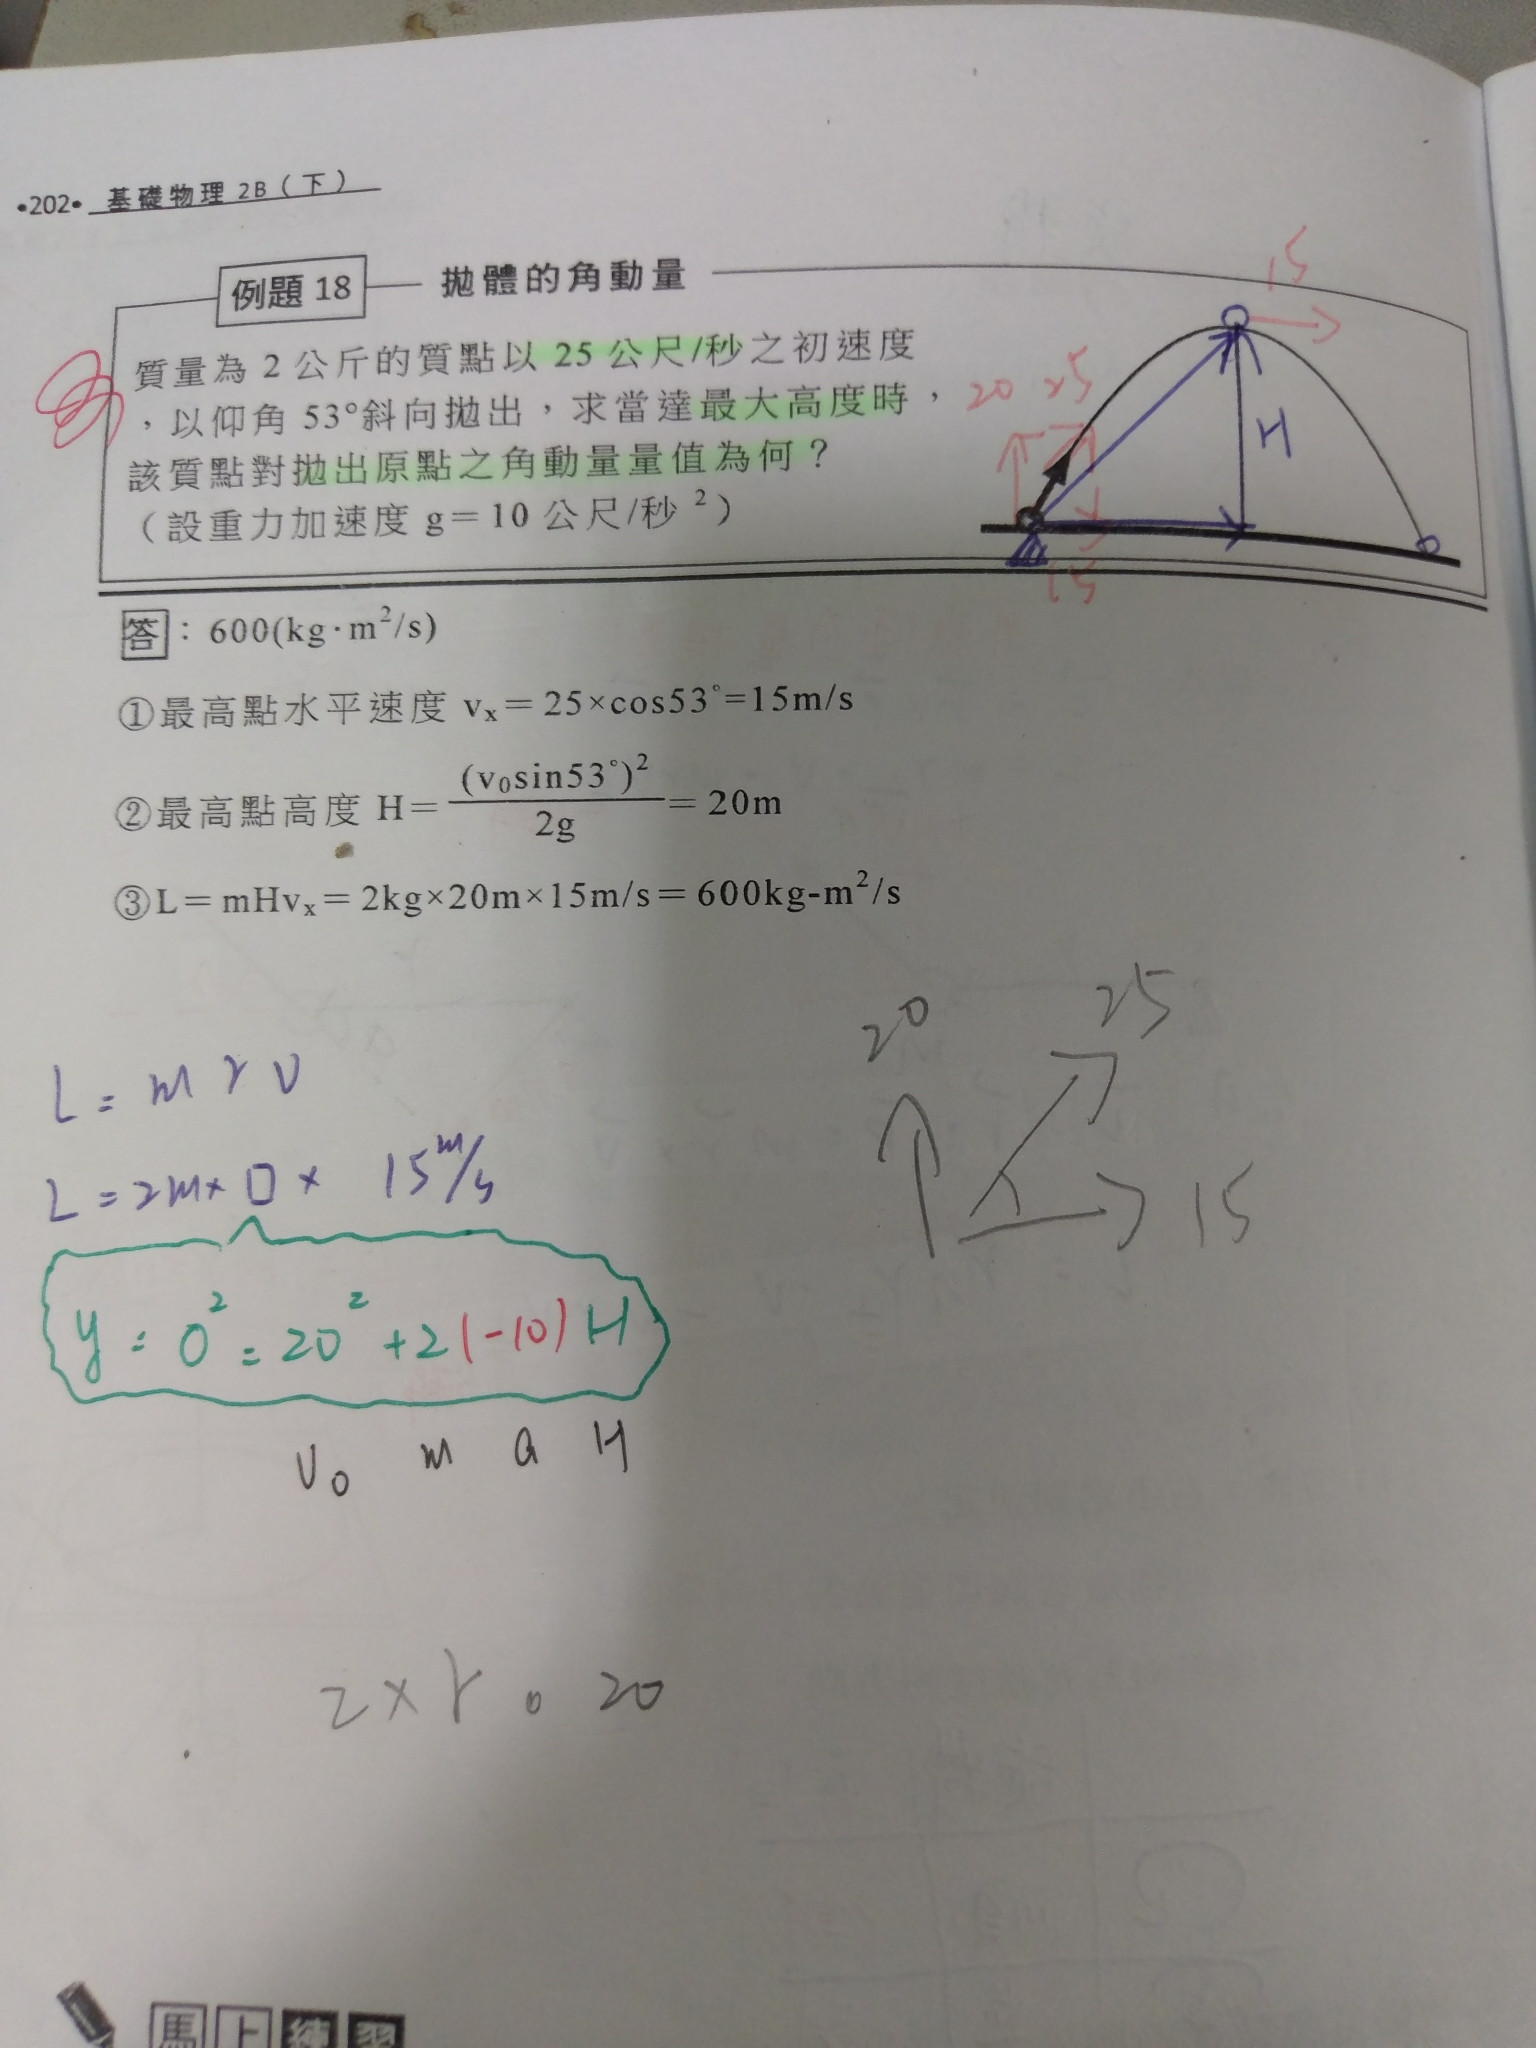 •202• 基礎物理 2B（下）
例題 18 拋體的角動量
質量為 2 公斤的質點以 25 公尺/秒之初速度
，以仰角 53°斜向拋出，求當達最大高度時，
該質點對拋出原點之角動量量值為何？
（設重力加速度 g＝10 公尺/秒²）
15
20 25
H
15
答：600(kg·m²/s)
①最高點水平速度 vₓ＝25×cos53°=15m/s
②最高點高度 H＝(v₀sin53°)²/2g＝20m
③L＝mHvₓ＝2kg×20m×15m/s＝600kg-m²/s
20 25
15
L = m r v
L = 2m × □ × 15 m/s
y = 0² = 20² + 2(-10) H
V₀ m a H
2 × r 。 20
馬上練習